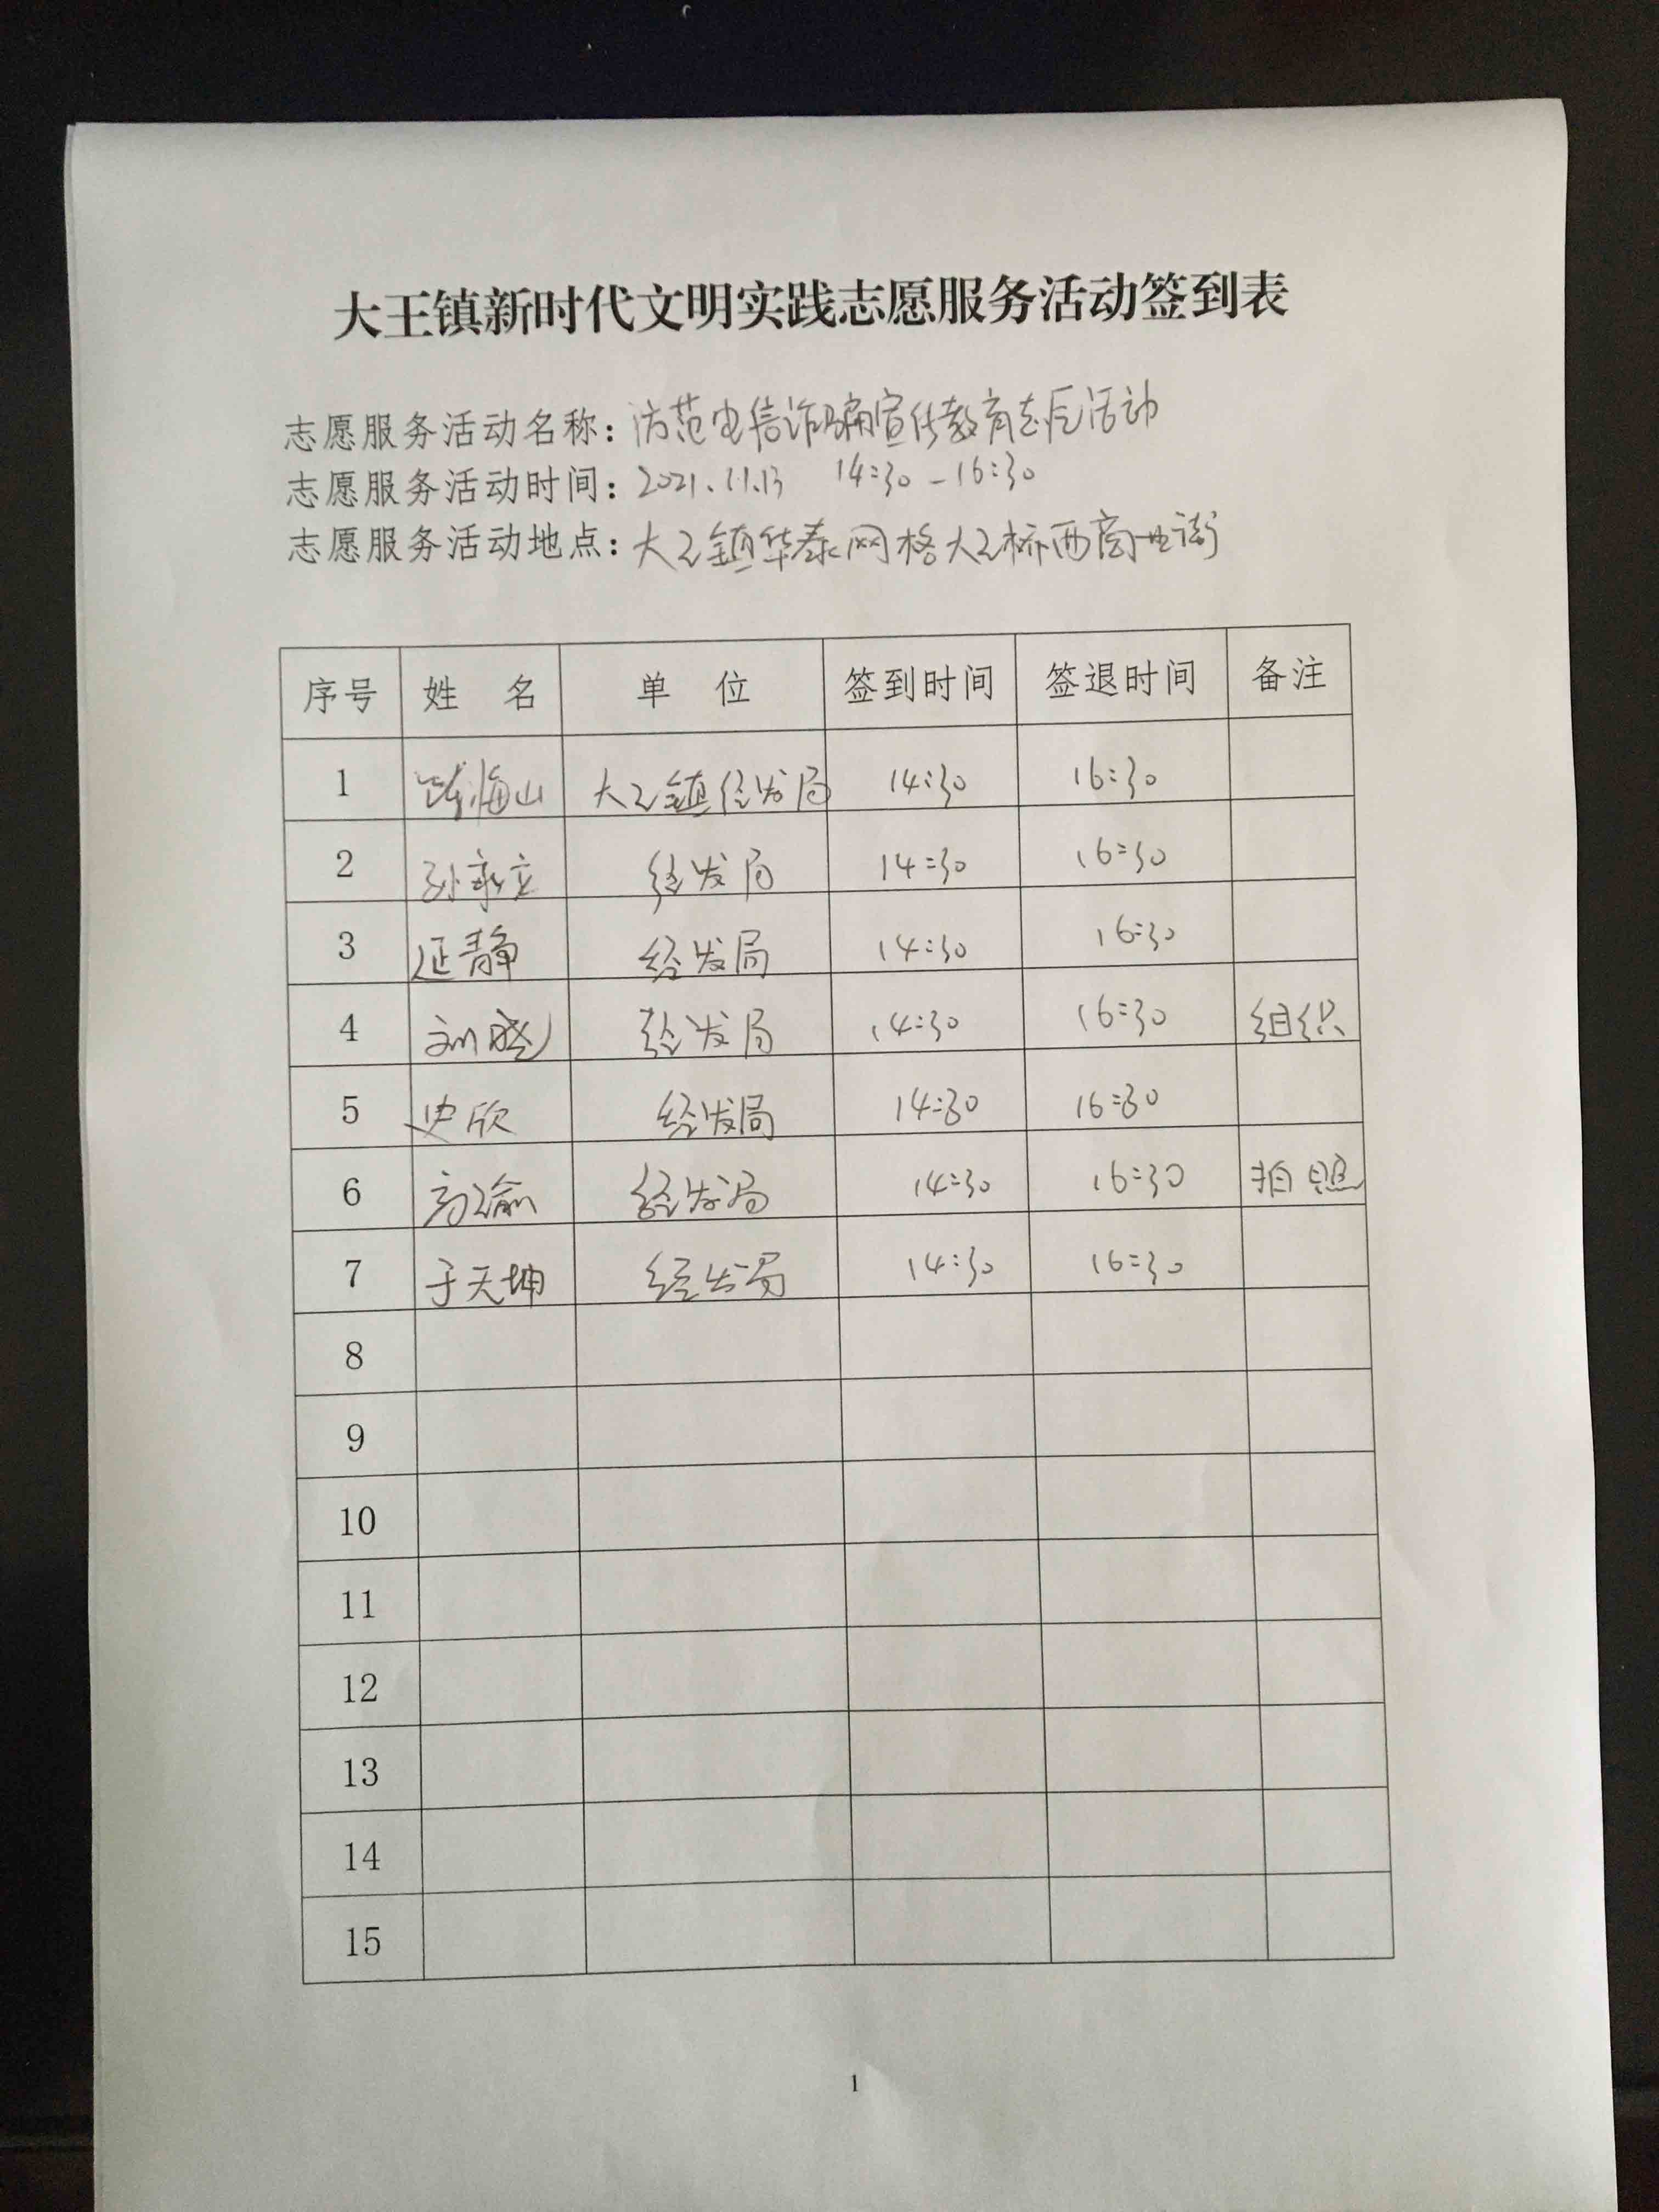 大王镇新时代文明实践志愿服务活动签到表
志愿服务活动名称：防范电信诈骗宣传教育志愿活动
志愿服务活动时间：2021.11.13 14:30-16:30
志愿服务活动地点：大王镇华泰网格大王桥西商业街
序号 姓 名 单 位 签到时间 签退时间 备注
1 海山 大王镇经发局 14:30 16:30
2 孙 立 经发局 14:30 16:30
3 延静 经发局 14:30 16:30
4 刘晓 经发局 14:30 16:30 组织
5 史欣 经发局 14:30 16:30
6 高瑜 经发局 14:30 16:30 拍照
7 于天坤 经发局 14:30 16:30
8
9
10
11
12
13
14
15
1